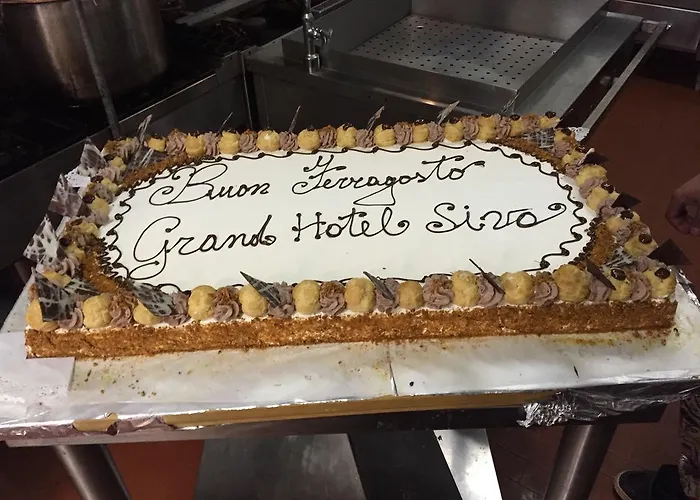 Buon Ferragosto
Grand Hotel Sivo